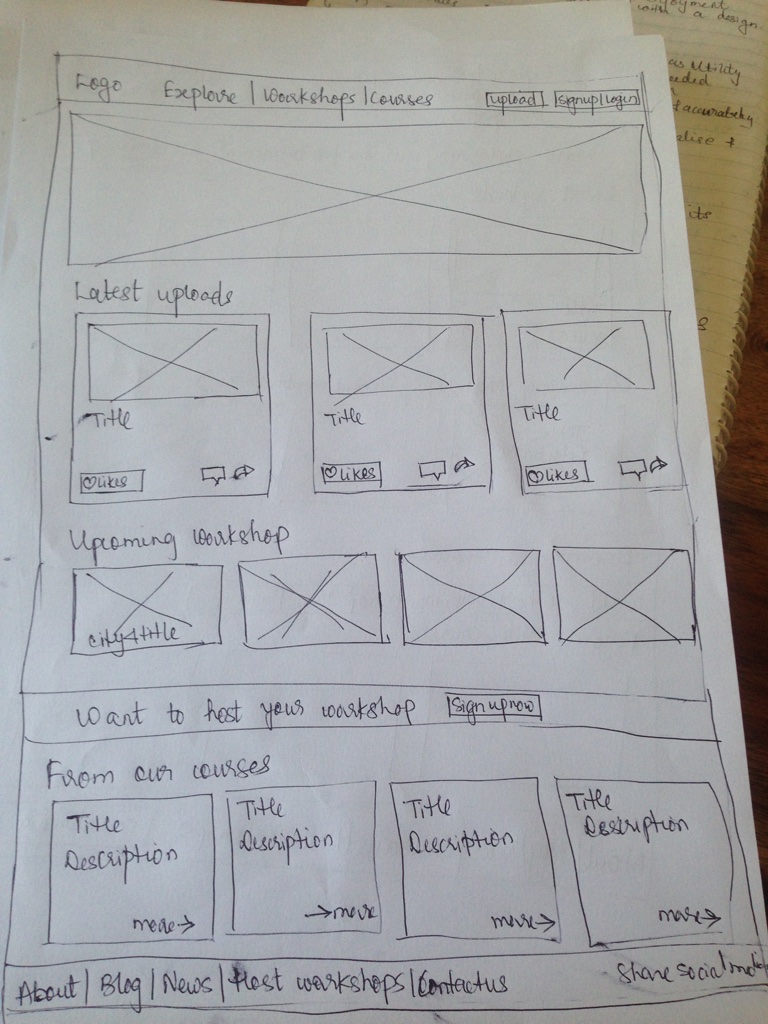 Logo Explore | Workshops | Courses upload signup|Login
Latest uploads
Title Title Title
likes likes likes
Upcoming workshop
city+title
Want to host your workshop Signup now
From our courses
Title Title Title Title
Description Description Description Description
more→ →more more→ more→
About | Blog | News | Host workshops | Contact us Share social media
with a design.
as utility
accurately
its